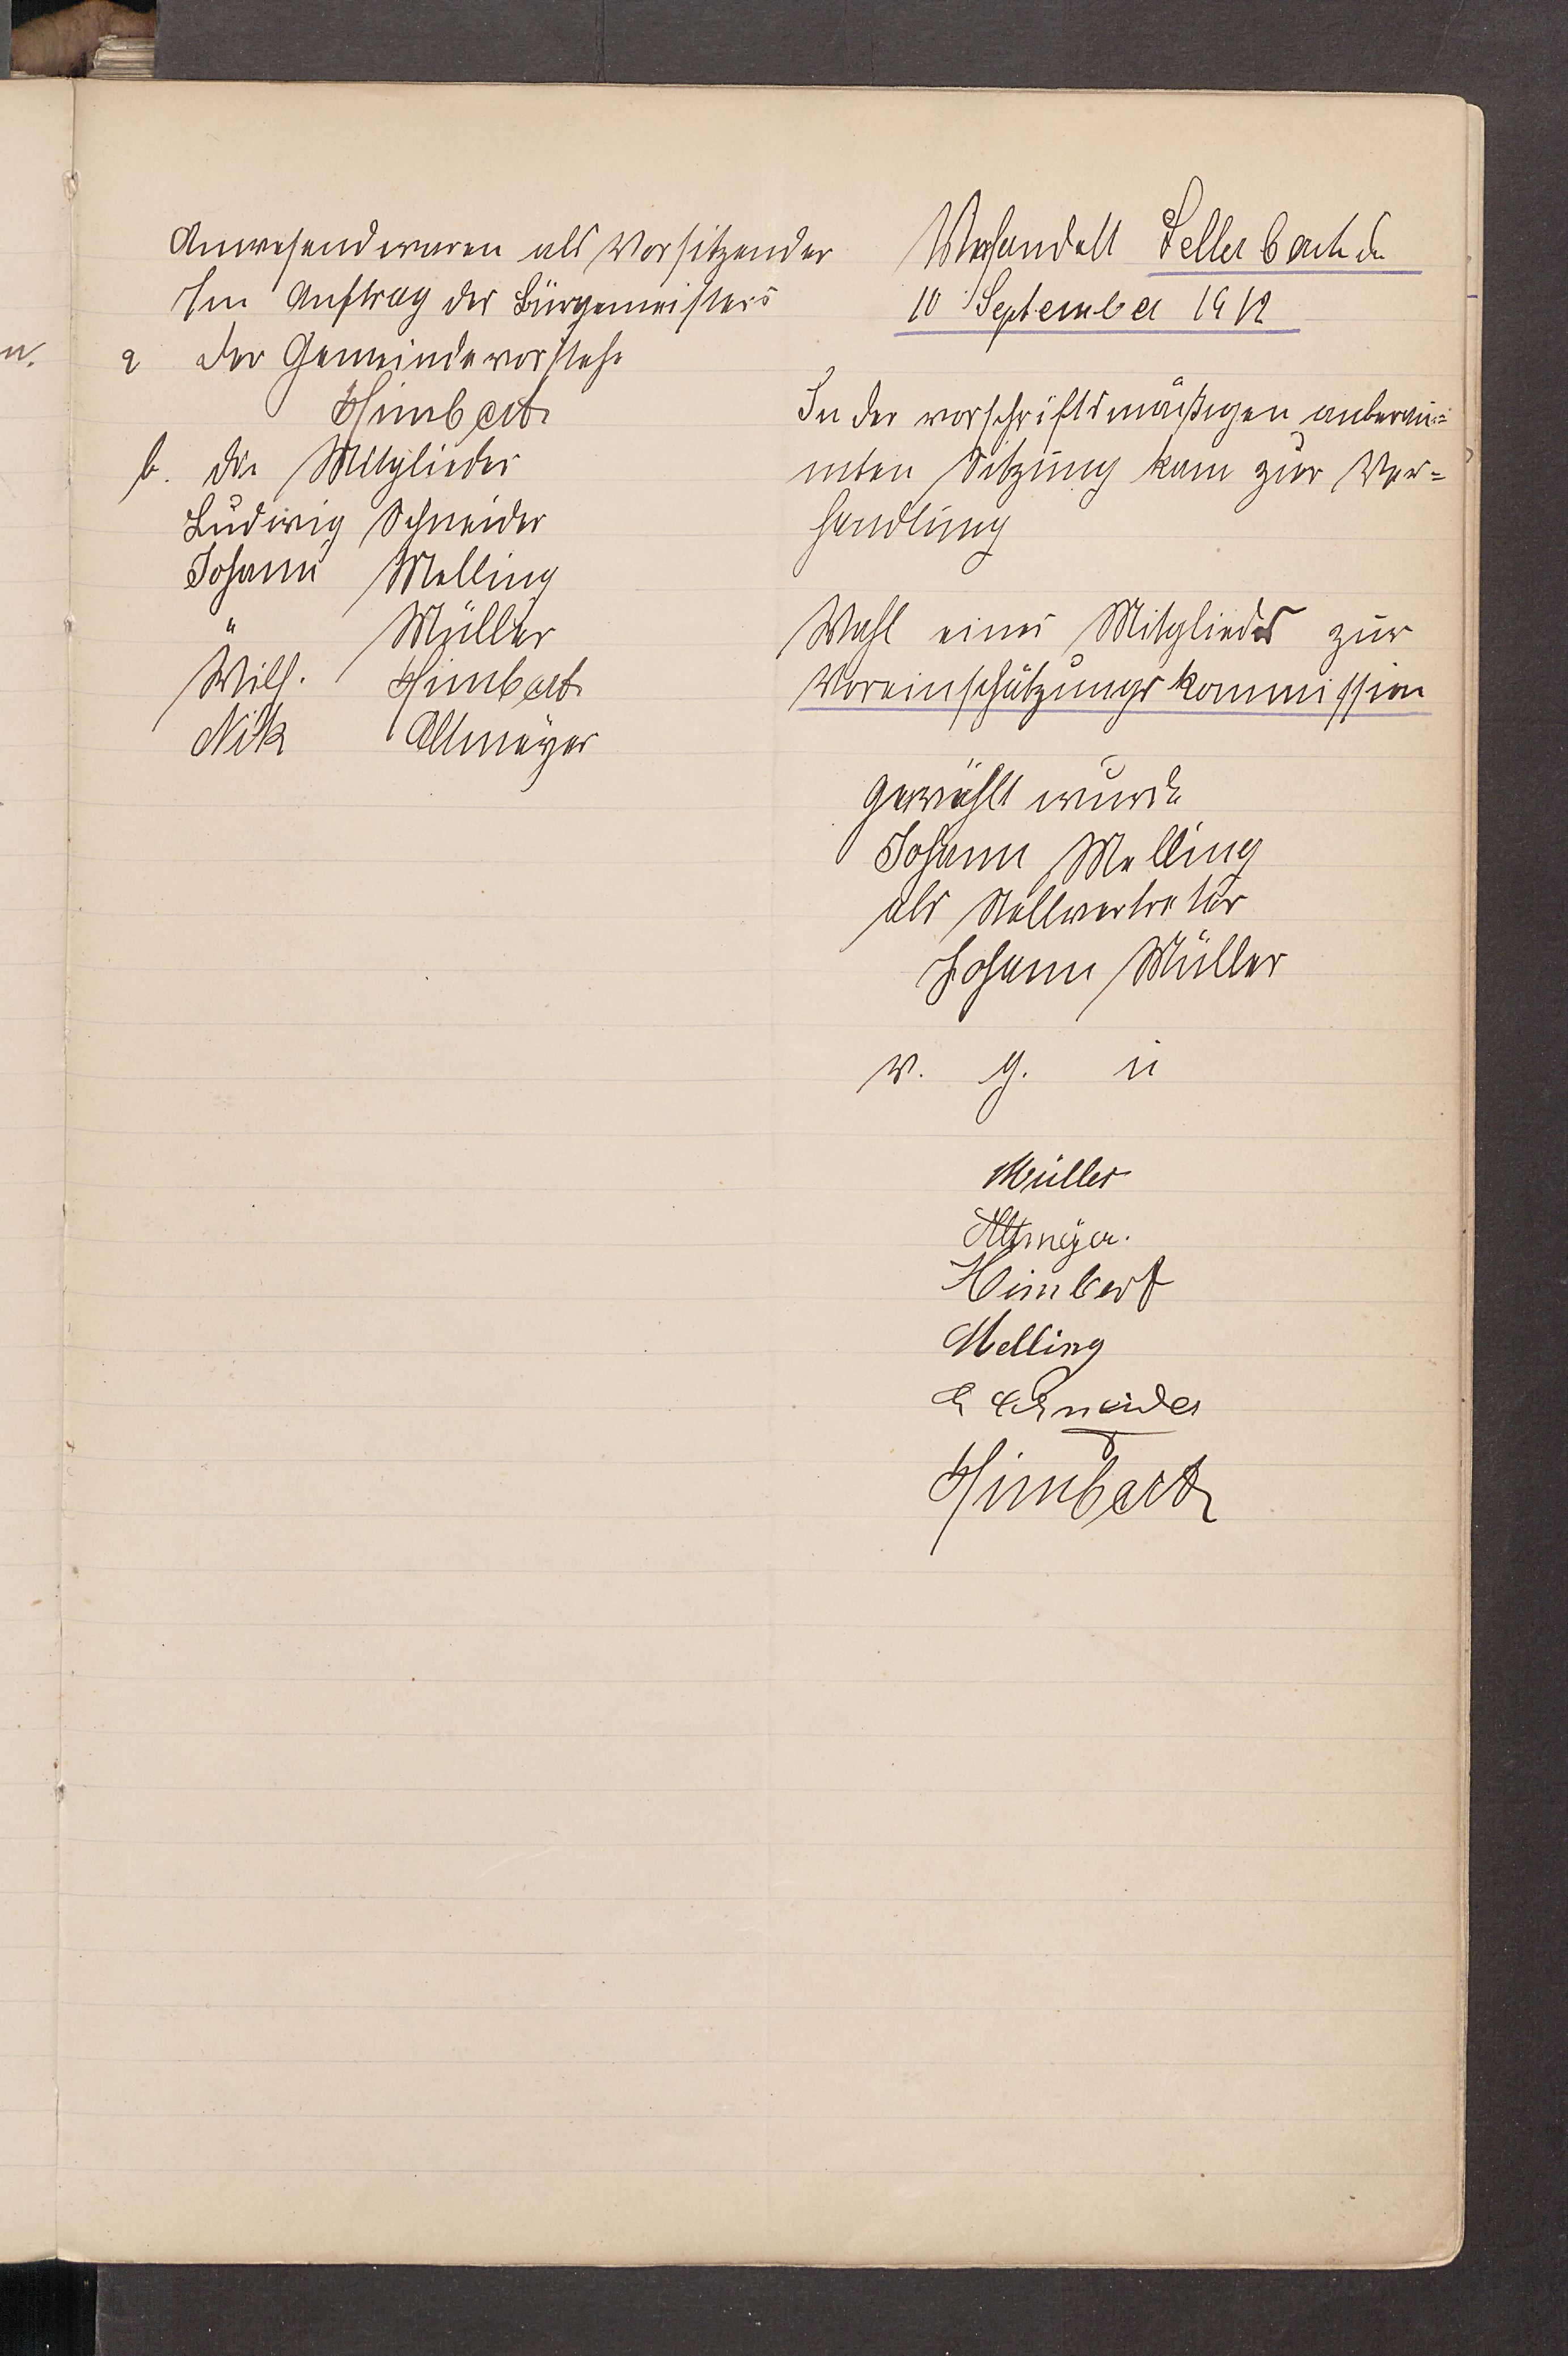 Anwesend waren als Vorsitzender
Im Auftrag des Bürgemeisters
a der Gemeindevorsteh.
Himbert
b. die Mitglieder
Ludwig Schneider
Johann Melling
" Müller
Wilh. Himbert
Nik Altmeyer
Verhandelt Sellerbach de
10 September 1912
In der vorschriftsmäßigen anberau=
mten Sitzung kam zur Ver=
handlung
Wahl eines Mitglieds zur
Voreinschätzungskommission
gewählt wurde
Johann Melling
als Stellvertreter
Johann Müller
v. g. u
Müller
Altmeyer.
Himbert
Melling
L Schneider
Himbert